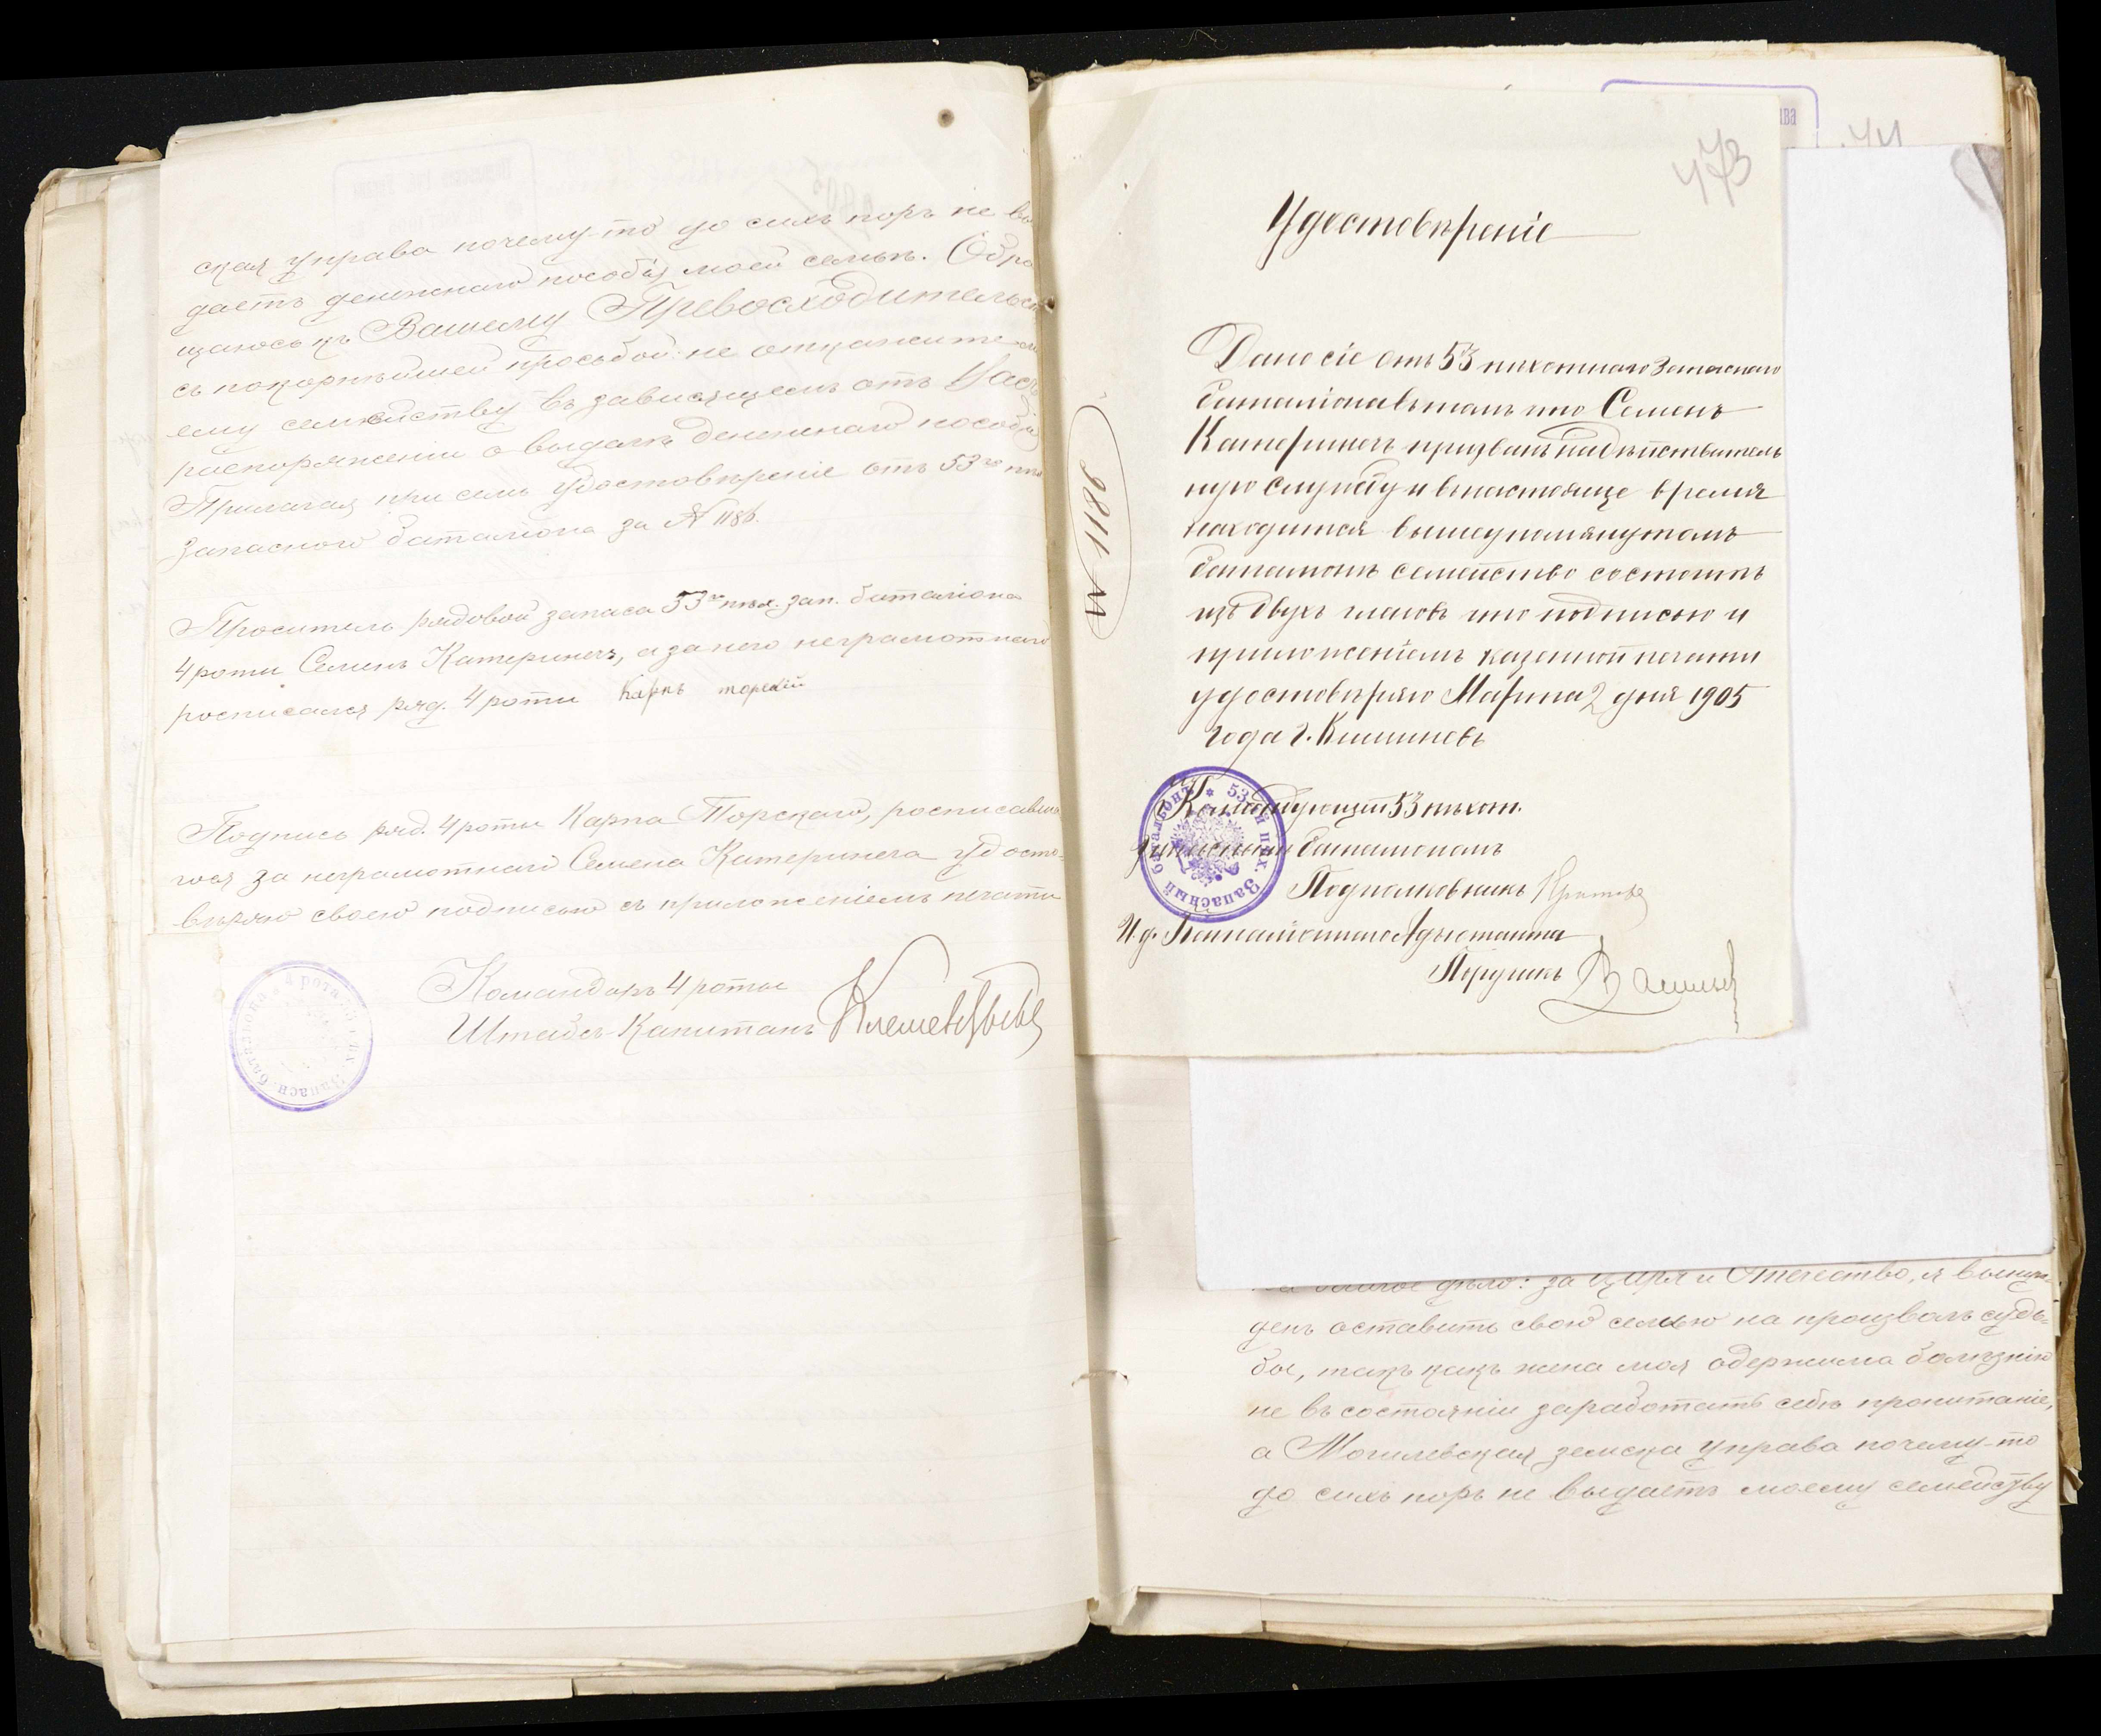 ская управа почему-то до сихъ поръ не вы
даетъ денежнаго пособія моей семьѣ. Обра
щаюсь къ Вашему Превосходительст
съ покорнѣйшей просьбой: не откажите мо
ему семейству въ зависящемъ отъ Васъ
распоряженіи о выдачѣ денежнаго пособія
Прилагая при семъ удостовѣреніе отъ 53го пѣх
запасного баталіона за № 1186.
Проситель рядовой запаса 53го пѣх. зап. баталіона
4 роти Семенъ Катеринечъ, а за него неграмотнаго
росписался ряд. 4 роти Карпъ торскій
Подпись ряд. 4 роти Карпа Торскаго, росписавша
гося за неграмотнаго Семена Катеринеча удосто-
вѣряю своею подписью съ приложеніемъ печати
Командиръ 4 роты
Штабсъ-Капитанъ
4 рота 53 пѣх. Запасн. баталіона
473
Удостовѣреніе
№ 1186
Дано сіе отъ 53 пихотнаго Запаснаго
баталіона втомъ что Семенъ
Катеринечъ призванъ надѣйствитель
ную службу и внастояще время
находится вышеупомянутомъ
баталионѣ семейство состоитъ
изъ двухъ членовъ что подписью и
приложеніемъ казенной печати
удостовѣряю Марта 2 дня 1905
года г. Кишиневъ
Командующій 53 пѣхот.
Запаснымъ баталиономъ
Подполковникъ
И. д. Баталіоннаго Адъютанта
Поручикъ
53-й пѣх. Запасный баталіонъ
ва
44
дѣло: за Царя и Отечество, я вынуж-
денъ оставить свою семью на произволъ судь-
бы, такъ какъ жена моя одержима болѣзнію
не въ состояніи заработать себѣ пропитаніе,
а Могилевская земска управа почему-то
до сихъ поръ не выдаетъ моему семейству